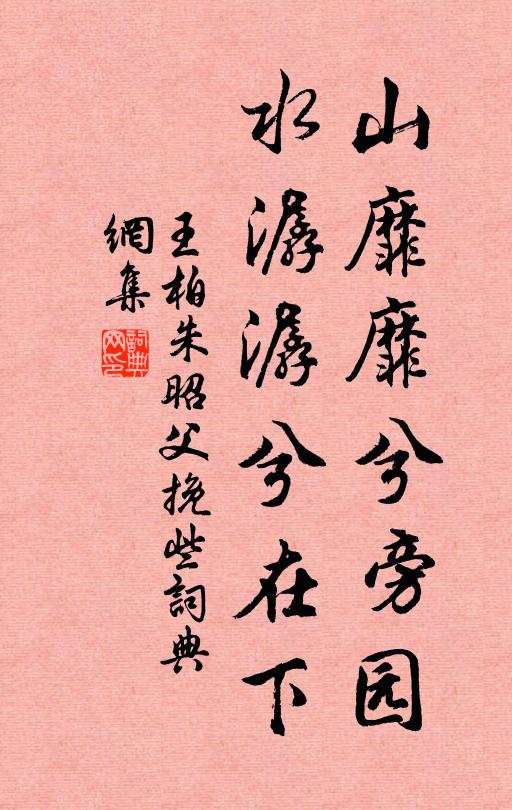 山靡靡兮旁园
水潺潺兮在下
王柏朱昭父挽些詞典
網集
詞典
网印